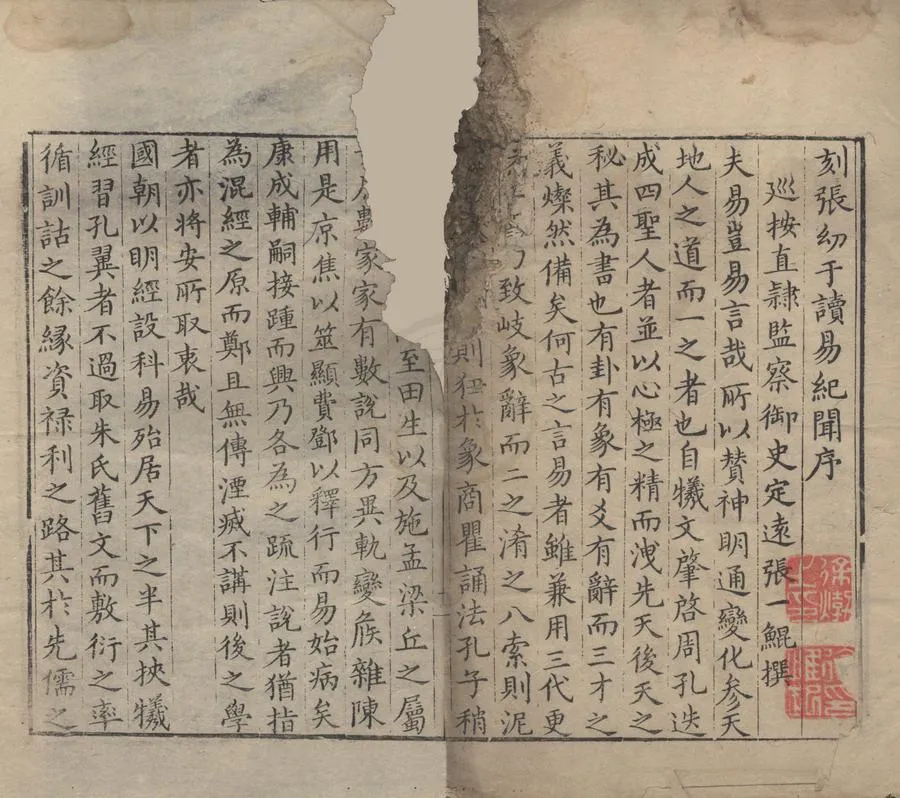 刻張幼于讀易紀聞序
巡按直隸監察御史定遠張一鯤撰
夫易豈易言哉所以贊神明通變化参天
地人之道而一之者也自犧文肇啓周孔迭
成四聖人者並以心極之精而洩先天後天之
秘其為書也有卦有象有爻有辭而三才之
義燦然備矣何古之言易者雖兼用三代更
致岐象辭而二之淆之八索則泥
則狃於象商瞿誦法孔子稍
至田生以及施孟梁丘之屬
家家有數說同方異軌變候雜陳
用是京焦以筮顯費鄧以釋行而易始病矣
康成輔嗣接踵而興乃各為之疏注說者猶指
為混經之原而鄭且無傳湮滅不講則後之學
者亦将安所取衷哉
國朝以明經設科易殆居天下之半其挾犧
經習孔翼者不過取朱氏舊文而敷衍之率
循訓詁之餘緣資禄利之路其於先儒之